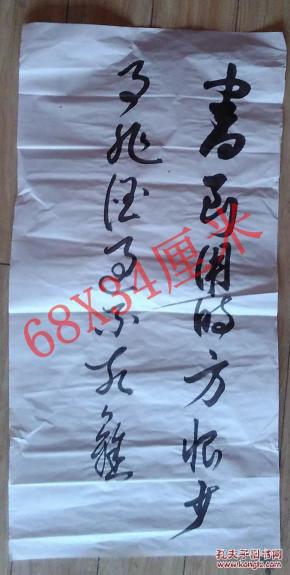 書到用時方恨少
事非經過不知難
68X34厘米
孔夫子旧书网
www.kongfz.com